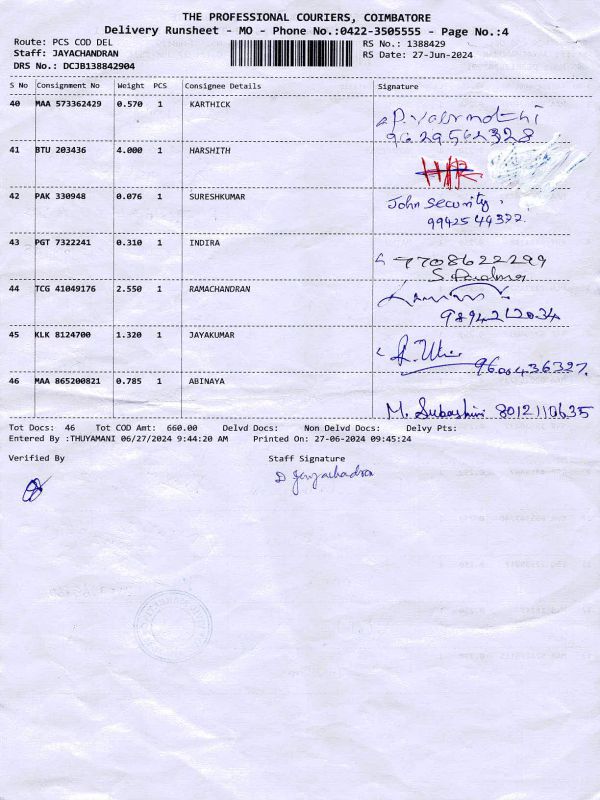 THE PROFESSIONAL COURIERS, COIMBATORE
Delivery Runsheet - MO - Phone No.:0422-3505555 - Page No.:4
Route: PCS COD DEL
RS No.: 1388429
Staff: JAYACHANDRAN
RS Date: 27-Jun-2024
DRS No.: DCJB138842904
S No Consignment No Weight PCS Consignee Details Signature
40 MAA 573362429 0.570 1 KARTHICK
9629562328
41 BTU 203436 4.000 1 HARSHITH
42 PAK 330948 0.076 1 SURESHKUMAR John Security.
9942549372.
43 PGT 7322241 0.310 1 INDIRA 7708622299
44 TCG 41049176 2.550 1 RAMACHANDRAN
9894212034
45 KLK 8124700 1.320 1 JAYAKUMAR
9600436327.
46 MAA 865200821 0.785 1 ABINAYA
M. Subashini 8012110635
Tot Docs: 46 Tot COD Amt: 660.00 Delvd Docs: Non Delvd Docs: Delvy Pts:
Entered By :THUYAMANI 06/27/2024 9:44:20 AM Printed On: 27-06-2024 09:45:24
Verified By Staff Signature
D Jayachadra